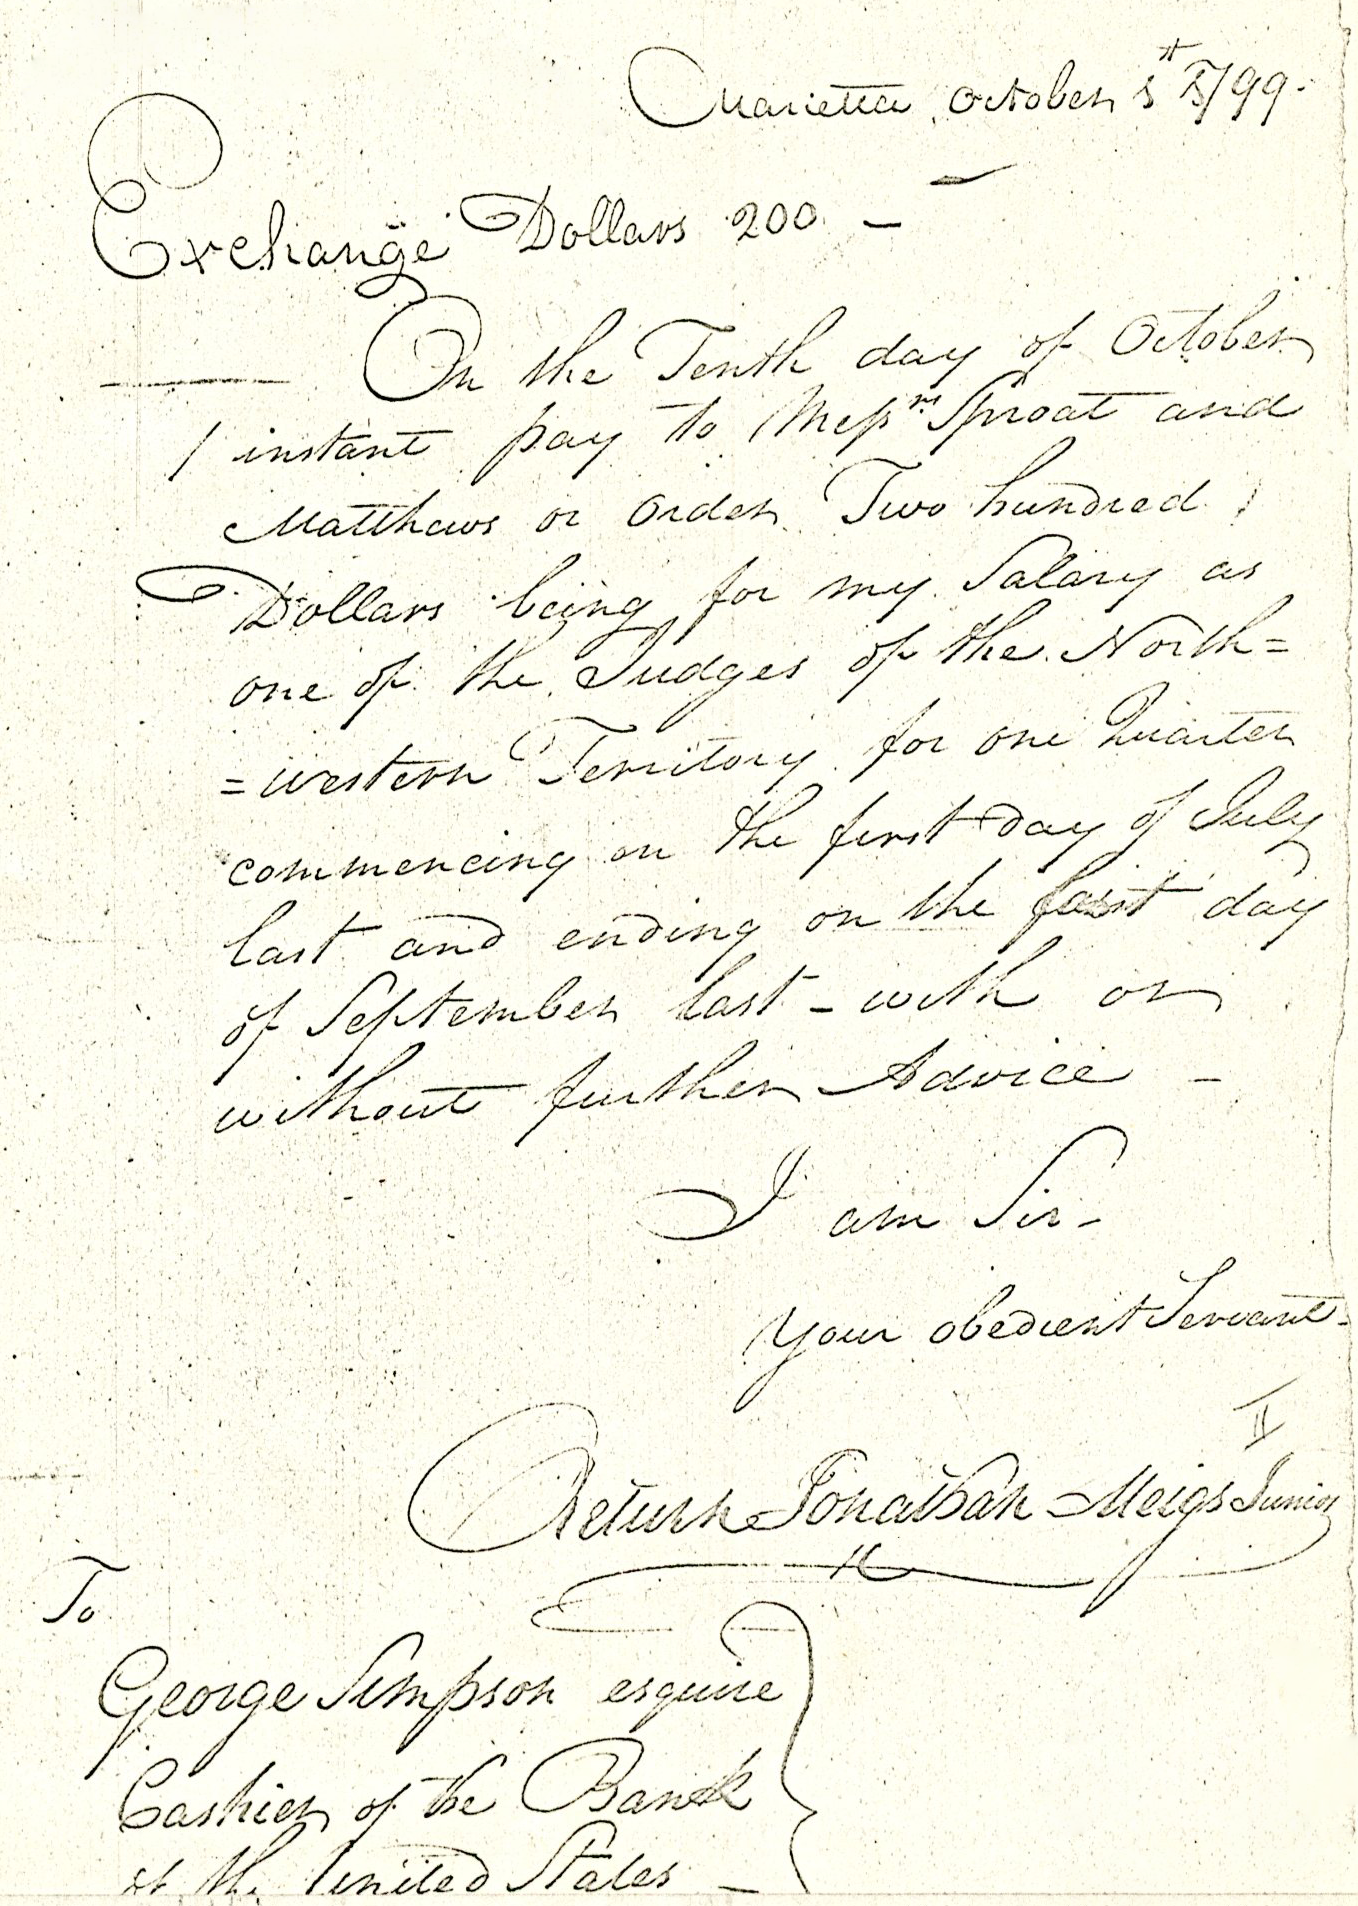 Marietta October 1st 1799.
Exchange Dollars 200 —
— On the Tenth day of October
instant pay to Messrs Sproat and
Matthews or order Two hundred
Dollars being for my Salary as
one of the Judges of the North=
=western Territory for one Quarter
commencing on the first day of July
last and ending on the last day
of September last – with or
without further Advice –
I am Sir –
your obedient Servant –
Return Jonathan Meigs Junior
To
George Simpson esquire
Cashier of the Bank
of the United States —